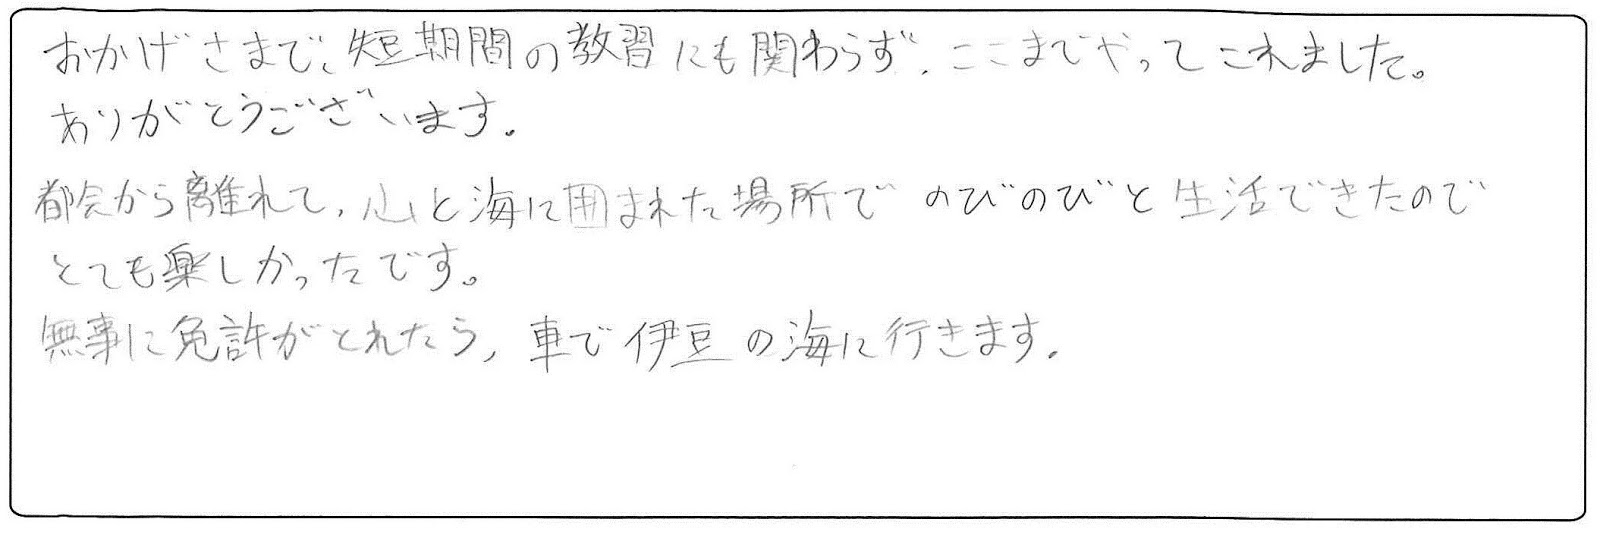 おかげさまで、短期間の教習にも関わらず、ここまでやってこれました。
ありがとうございます。
都会から離れて、山と海に囲まれた場所でのびのびと生活できたので
とても楽しかったです。
無事に免許がとれたら、車で伊豆の海に行きます。